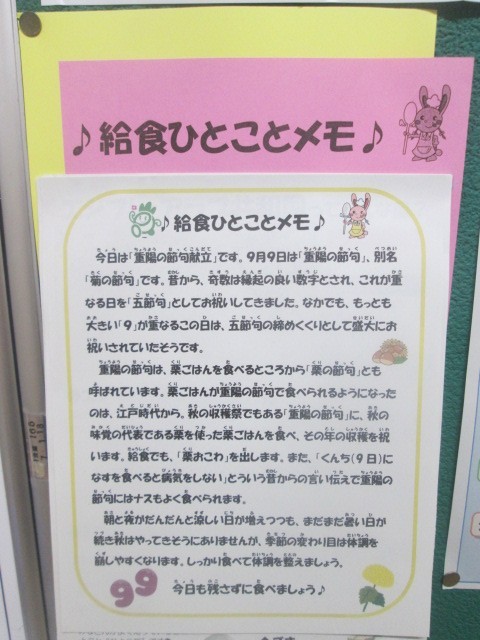 ♪給食ひとことメモ♪
♪給食ひとことメモ♪
今日は「重陽の節句献立」です。9月9日は「重陽の節句」、別名
「菊の節句」です。昔から、奇数は縁起の良い数字とされ、これが重
なる日を「五節句」としてお祝いしてきました。なかでも、もっとも
大きい「9」が重なるこの日は、五節句の締めくくりとして盛大にお
祝いされていたそうです。
重陽の節句は、栗ごはんを食べるところから「栗の節句」とも
呼ばれています。栗ごはんが重陽の節句で食べられるようになった
のは、江戸時代から、秋の収穫祭でもある「重陽の節句」に、秋の
味覚の代表である栗を使った栗ごはんを食べ、その年の収穫を祝
います。給食でも、「栗おこわ」を出します。また、「くんち(9日)に
なすを食べると病気をしない」とういう昔からの言い伝えで重陽の
節句にはナスもよく食べられます。
朝と夜がだんだんと涼しい日が増えつつも、まだまだ暑い日が
続き秋はやってきそうにありませんが、季節の変わり目は体調を
崩しやすくなります。しっかり食べて体調を整えましょう。
99
今日も残さずに食べましょう♪